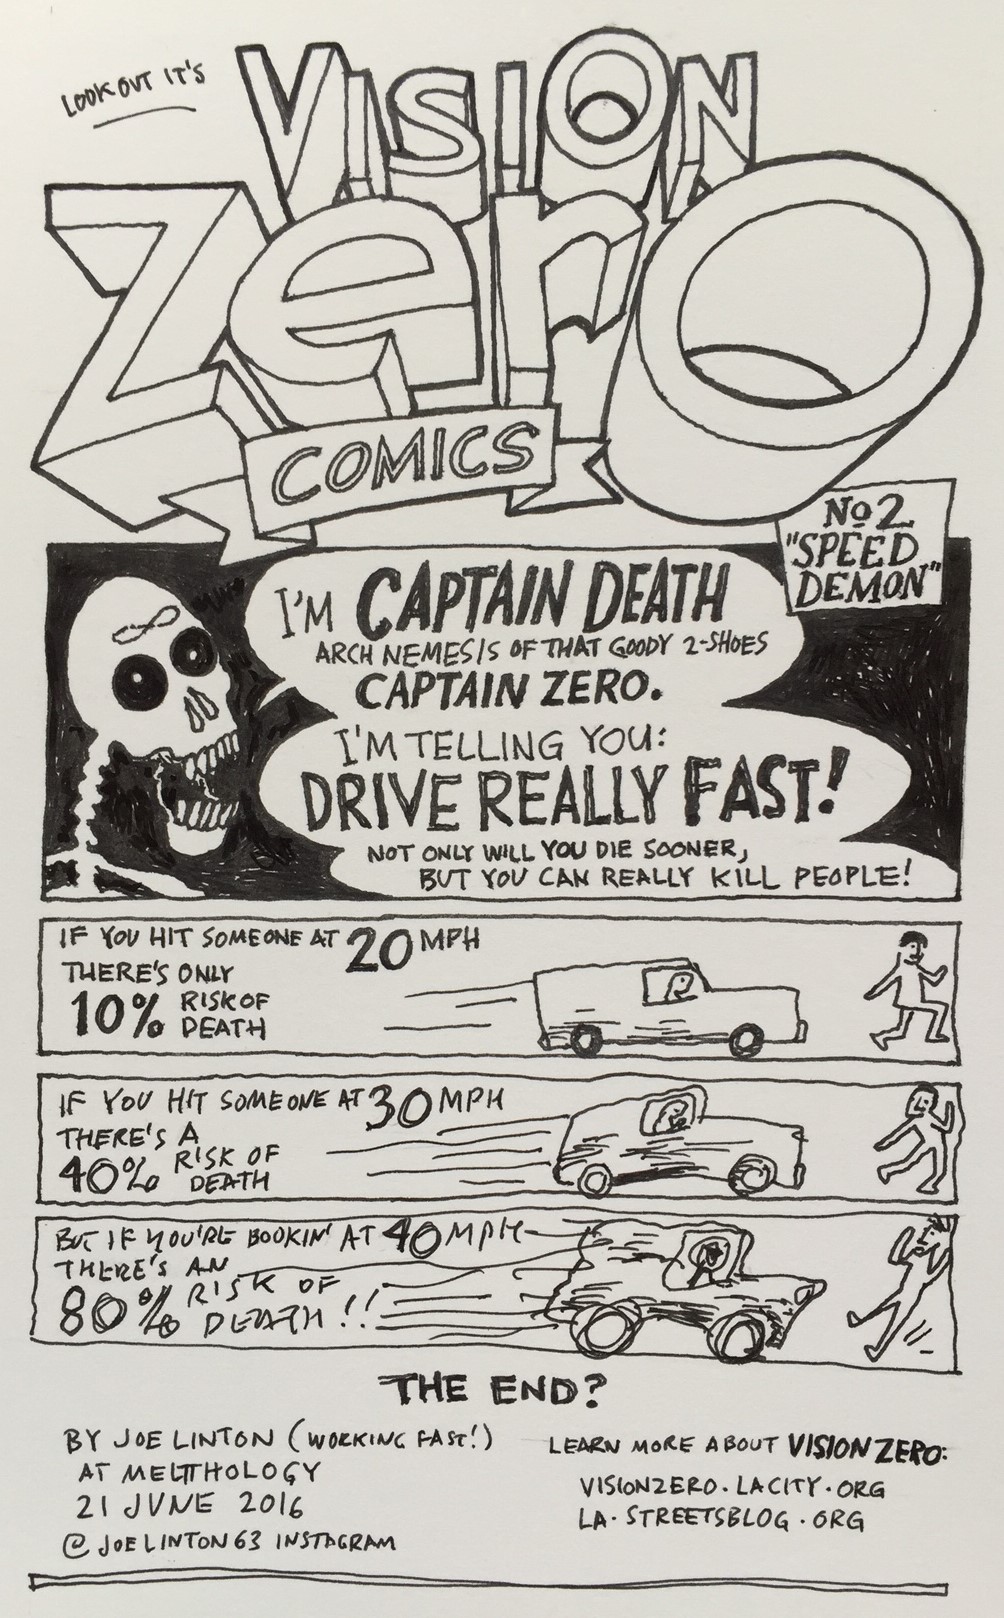 LOOK OUT IT'S
VISION
Zero
COMICS
No 2
"SPEED
DEMON"
I'M CAPTAIN DEATH
ARCH NEMESIS OF THAT GOODY 2-SHOES
CAPTAIN ZERO.
I'M TELLING YOU:
DRIVE REALLY FAST!
NOT ONLY WILL YOU DIE SOONER,
BUT YOU CAN REALLY KILL PEOPLE!
IF YOU HIT SOMEONE AT 20 MPH
THERE'S ONLY
10% RISK OF
DEATH
IF YOU HIT SOMEONE AT 30 MPH
THERE'S A
40% RISK OF
DEATH
BUT IF YOU'RE BOOKIN' AT 40 MPH
THERE'S AN
80% RISK OF
DEATH!!
THE END?
BY JOE LINTON (WORKING FAST!)
AT MELTTHOLOGY
21 JUNE 2016
@JOELINTON63 INSTAGRAM
LEARN MORE ABOUT VISION ZERO:
VISIONZERO.LACITY.ORG
LA.STREETSBLOG.ORG